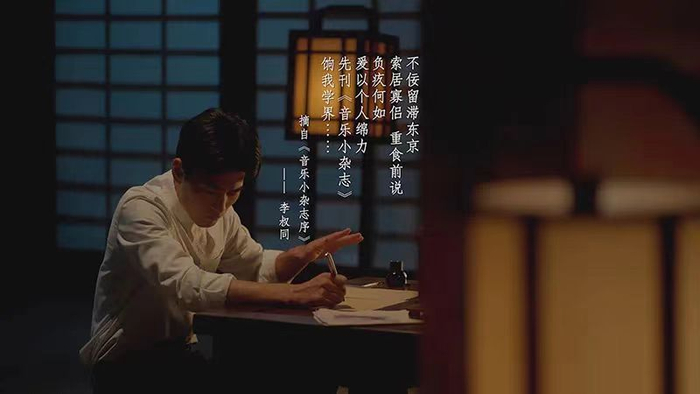 不佞留滞东京
索居寡侣 重食前说
负疚何如
爰以个人绵力
先刊《音乐小杂志》
饷我学界……
摘自《音乐小杂志序》
——李叔同